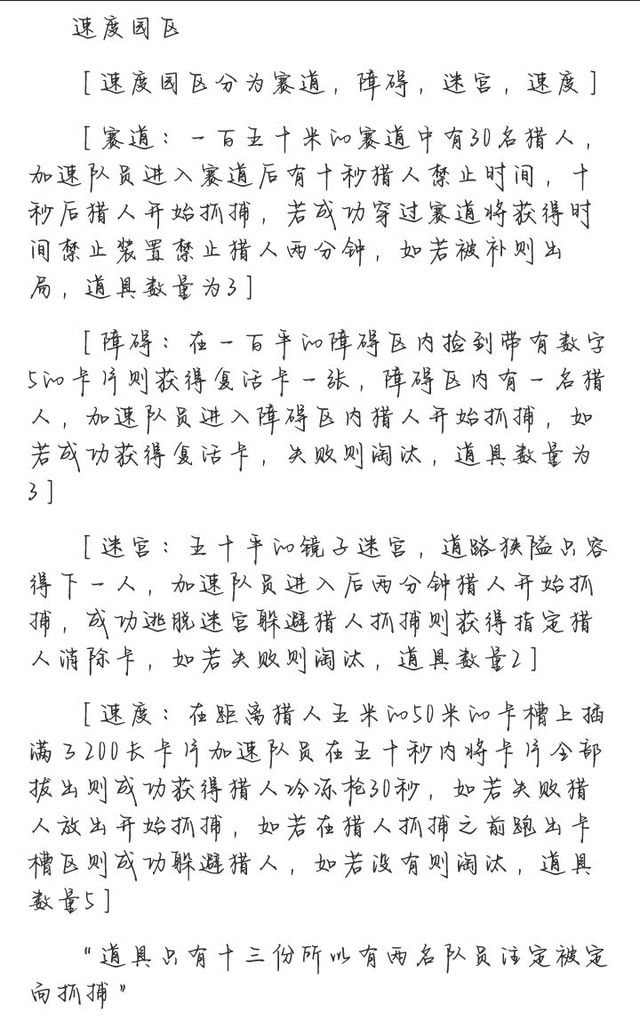 速度园区
[速度园区分为赛道，障碍，迷宫，速度]
[赛道：一百五十米的赛道中有30名猎人，
加速队员进入赛道后有十秒猎人禁止时间，十
秒后猎人开始抓捕，若成功穿过赛道将获得时
间禁止装置禁止猎人两分钟，如若被补则出
局，道具数量为3]
[障碍：在一百平的障碍区内捡到带有数字
5的卡片则获得复活卡一张，障碍区内有一名猎
人，加速队员进入障碍区内猎人开始抓捕，如
若成功获得复活卡，失败则淘汰，道具数量为
3]
[迷宫：五十平的镜子迷宫，道路狭隘只容
得下一人，加速队员进入后两分钟猎人开始抓
捕，成功逃脱迷宫躲避猎人抓捕则获得指定猎
人消除卡，如若失败则淘汰，道具数量2]
[速度：在距离猎人五米的50米的卡槽上插
满了200长卡片加速队员在五十秒内将卡片全部
拔出则成功获得猎人冷冻枪30秒，如若失败猎
人放出开始抓捕，如若在猎人抓捕之前跑出卡
槽区则成功躲避猎人，如若没有则淘汰，道具
数量5]
“道具只有十三份所以有两名队员注定被定
向抓捕”